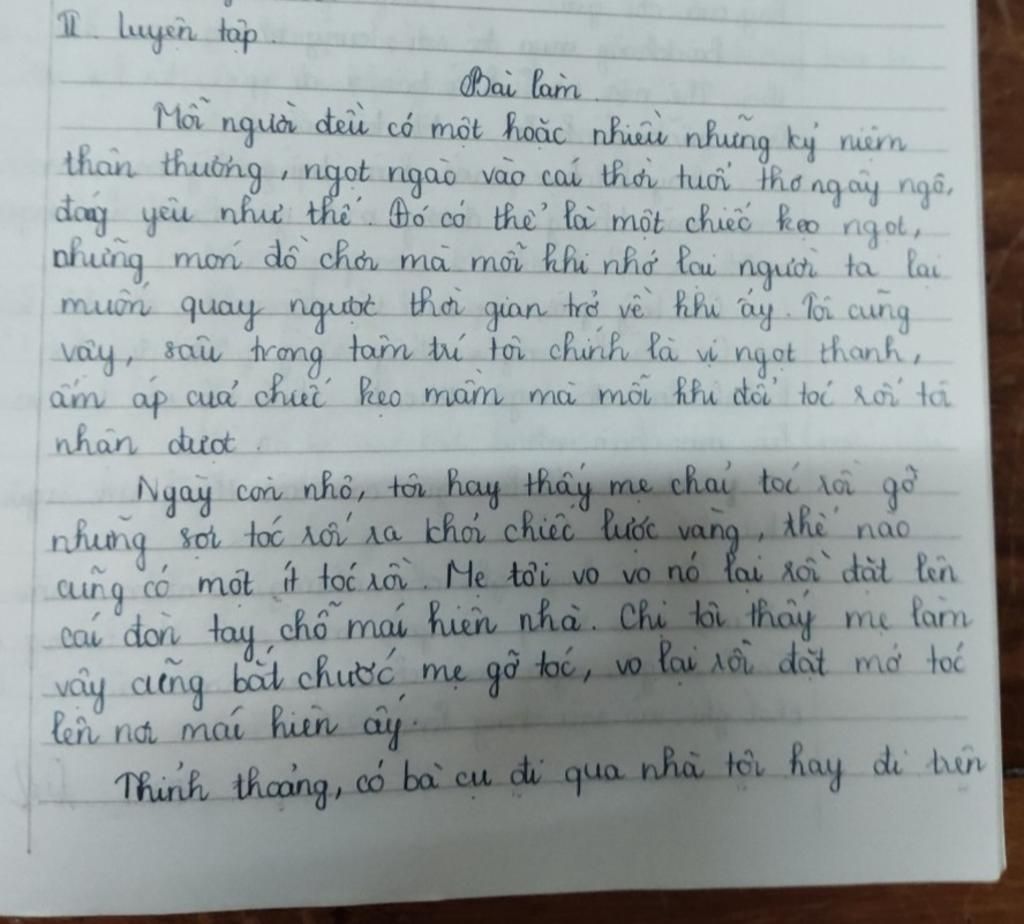 II luyện tập.
Bài làm.
Mỗi người đều có một hoặc nhiều những kỷ niệm
thân thương, ngọt ngào vào cái thời tuổi thơ ngây ngô,
đáng yêu như thế. Đó có thể là một chiếc kẹo ngọt,
những món đồ chơi mà mỗi khi nhớ lại người ta lại
muốn quay ngược thời gian trở về khi ấy. Tôi cũng
vậy, sâu trong tâm trí tôi chính là vị ngọt thanh,
ấm áp cuả chiếc kẹo mầm mà mỗi khi đổi tóc rối tôi
nhận được.
Ngày còn nhỏ, tôi hay thấy mẹ chải tóc rồi gỡ
những sợi tóc rối ra khỏi chiếc lược vàng, thế nào
cũng có một ít tóc rối. Mẹ tôi vo vo nó lại rồi đặt lên
cái đòn tay chỗ mái hiên nhà. Chị tôi thấy mẹ làm
vậy cũng bắt chước mẹ gỡ tóc, vo lại rồi đặt mớ tóc
lên nơi mái hiên ấy.
Thỉnh thoảng, có bà cụ đi qua nhà tôi hay đi trên